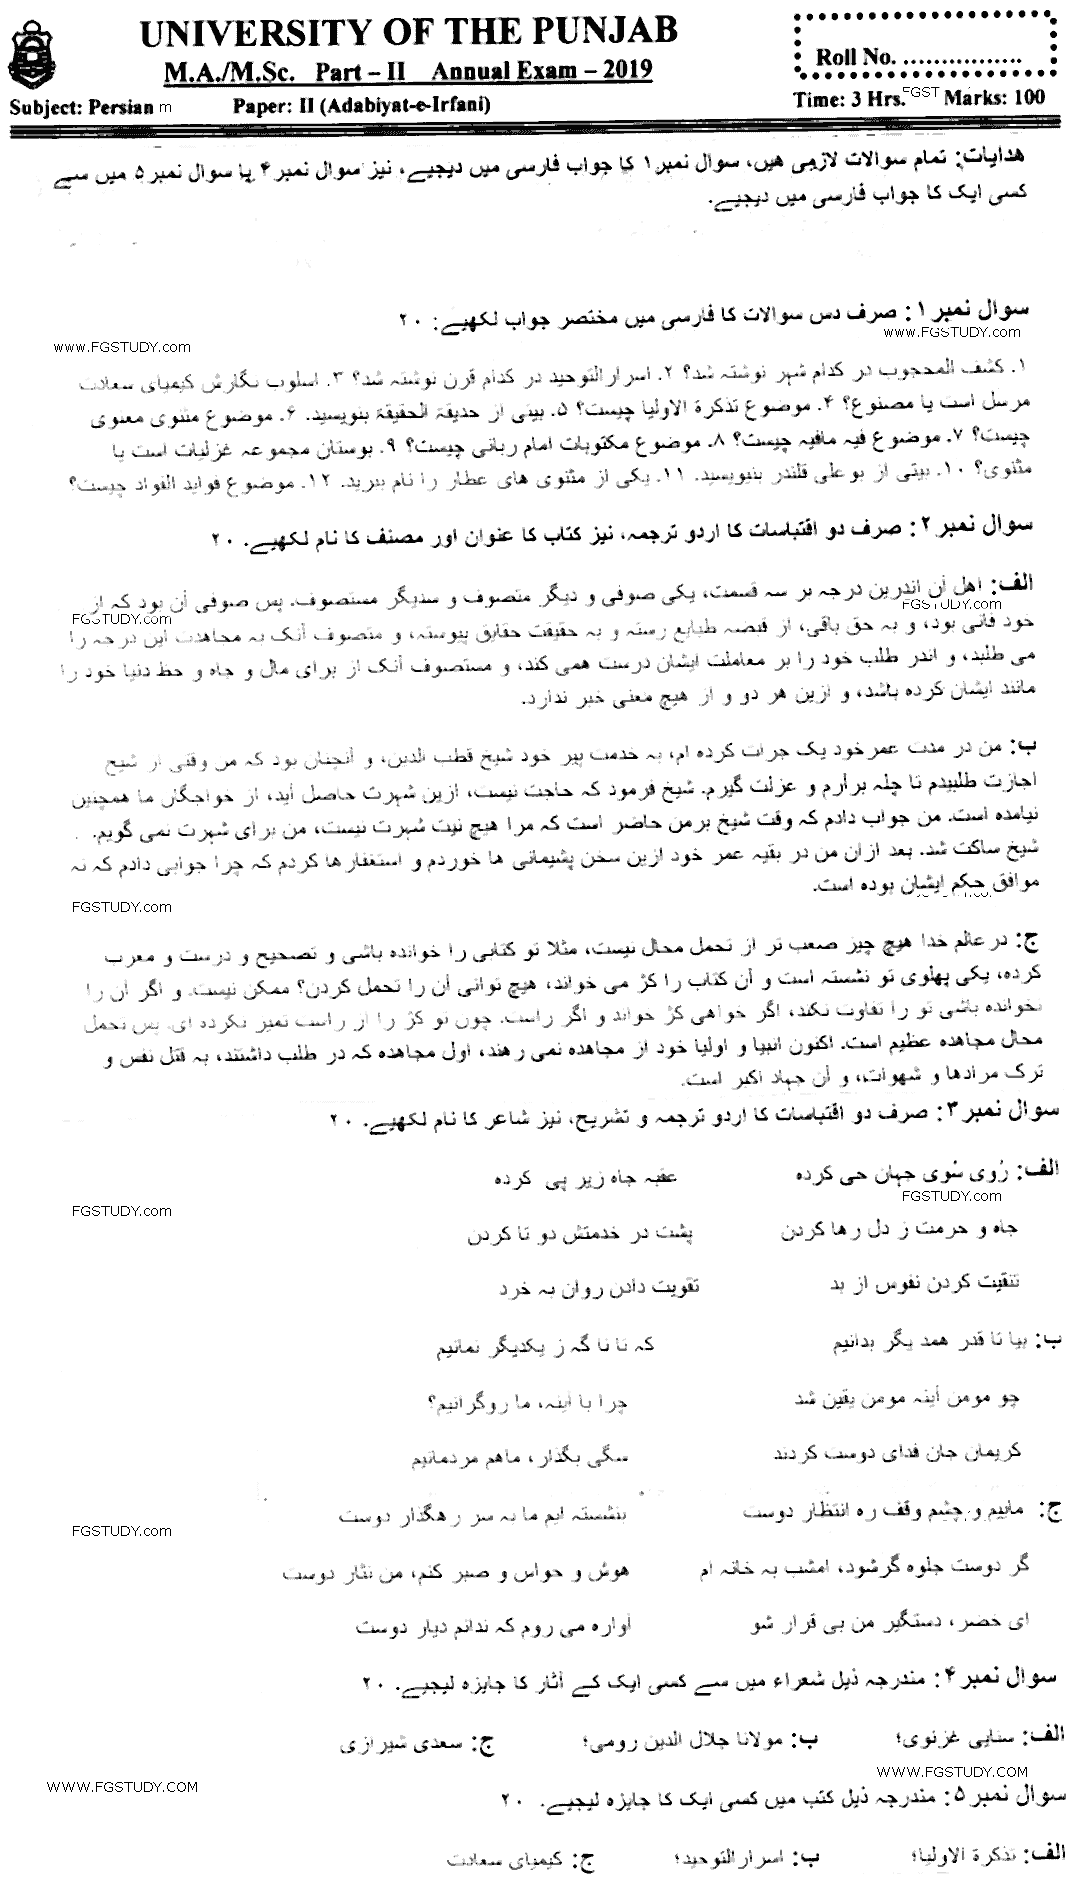 UNIVERSITY OF THE PUNJAB
M.A./M.Sc. Part – II Annual Exam – 2019
Roll No. ................
Subject: Persian m Paper: II (Adabiyat-e-Irfani) Time: 3 Hrs. FGST Marks: 100
هدایات: تمام سوالات لازمی هیں، سوال نمبر ۱ کا جواب فارسی میں دیجیے، نیز سوال نمبر ۴ یا سوال نمبر ۵ میں سے
کسی ایک کا جواب فارسی میں دیجیے.
سوال نمبر ۱: صرف دس سوالات کا فارسی میں مختصر جواب لکھیے: ۲۰
www.FGSTUDY.com www.FGSTUDY.com
۱. کشف المحجوب در کدام شهر نوشته شد؟ ۲. اسرارالتوحید در کدام قرن نوشته شد؟ ۳. اسلوب نگارش کیمیای سعادت
مرسل است یا مصنوع؟ ۴. موضوع تذکرة الاولیا چیست؟ ۵. بیتی از حدیقة الحقیقة بنویسید. ۶. موضوع مثنوی معنوی
چیست؟ ۷. موضوع فیه مافیه چیست؟ ۸. موضوع مکتوبات امام ربانی چیست؟ ۹. بوستان مجموعه غزلیات است یا
مثنوی؟ ۱۰. بیتی از بوعلی قلندر بنیویسید. ۱۱. یکی از مثنوی های عطار را نام ببرید. ۱۲. موضوع فواید الفواد چیست؟
سوال نمبر ۲: صرف دو اقتباسات کا اردو ترجمه، نیز کتاب کا عنوان اور مصنف کا نام لکھیے. ۲۰
الف: اهل آن اندرین درجه بر سه قسمت، یکی صوفی و دیگر متصوف و سدیگر مستصوف. پس صوفی آن بود که از
FGSTUDY.com FGSTUDY.com
خود فانی بود، و به حق باقی، از قبضه طبایع رسته و به حقیقت حقایق پیوسته، و متصوف آنک به مجاهدت این درجه را
می طلبد، و اندر طلب خود را بر معاملت ایشان درست همی کند، و مستصوف آنک از برای مال و جاه و حظ دنیا خود را
مانند ایشان کرده باشد، و ازین هر دو و از هیچ معنی خبر ندارد.
ب: من در مدت عمرخود یک جرات کرده ام، به خدمت پیر خود شیخ قطب الدین، و آنچنان بود که من وقتی از شیخ
اجازت طلبیدم تا چله برآرم و عزلت گیرم. شیخ فرمود که حاجت نیست، ازین شهرت حاصل آید، از خواجگان ما همچنین
نیامده است. من جواب دادم که وقت شیخ برمن حاضر است که مرا هیچ نیت شهرت نیست، من برای شهرت نمی گویم.
شیخ ساکت شد. بعد ازان من در بقیه عمر خود ازین سخن پشیمانی ها خوردم و استغفارها کردم که چرا جوابی دادم که نه
موافق حکم ایشان بوده است.
FGSTUDY.com
ج: در عالم خدا هیچ چیز صعب تر از تحمل محال نیست، مثلا تو کتابی را خوانده باشی و تصحیح و درست و معرب
کرده، یکی پهلوی تو نشسته است و آن کتاب را کژ می خواند، هیچ توانی آن را تحمل کردن؟ ممکن نیست. و اگر آن را
نخوانده باشی تو را تفاوت نکند، اگر خواهی کژ خواند و اگر راست. چون تو کژ را از راست تمیز نکرده ای. پس تحمل
محال مجاهده عظیم است. اکنون انبیا و اولیا خود از مجاهده نمی رهند، اول مجاهده که در طلب داشتند، به قتل نفس و
ترک مرادها و شهوات، و آن جهاد اکبر است.
سوال نمبر ۳: صرف دو اقتباسات کا اردو ترجمه و تشریح، نیز شاعر کا نام لکھیے. ۲۰
الف: رُوی سُوی جهان حی کرده عقبه جاه زیر پی کرده
FGSTUDY.com FGSTUDY.com
جاه و حرمت ز دل رها کردن پشت در خدمتش دو تا کردن
تنقیت کردن نفوس از بد تقویت دادن روان به خرد
ب: بیا تا قدر همد یگر بدانیم که تا نا گه ز یکدیگر نمانیم
چو مومن آینه مومن یقین شد چرا با آینه، ما روگرانیم؟
کریمان جان فدای دوست کردند سگی بگذار، ماهم مردمانیم
ج: ماییم و چشم وقف ره انتظار دوست بنشسته ایم ما به سر رهگذار دوست
FGSTUDY.com
گر دوست جلوه گرشود، امشب به خانه ام هوش و حواس و صبر کنم، من نثار دوست
ای خضر، دستگیر من بی قرار شو آواره می روم که ندانم دیار دوست
سوال نمبر ۴: مندرجه ذیل شعراء میں سے کسی ایک کے آثار کا جایزه لیجیے. ۲۰
الف: سنایی غزنوی؛ ب: مولانا جلال الدین رومی؛ ج: سعدی شیرازی
WWW.FGSTUDY.COM WWW.FGSTUDY.COM
سوال نمبر ۵: مندرجه ذیل کتب میں کسی ایک کا جایزه لیجیے. ۲۰
الف: تذکرة الاولیا؛ ب: اسرارالتوحید؛ ج: کیمیای سعادت